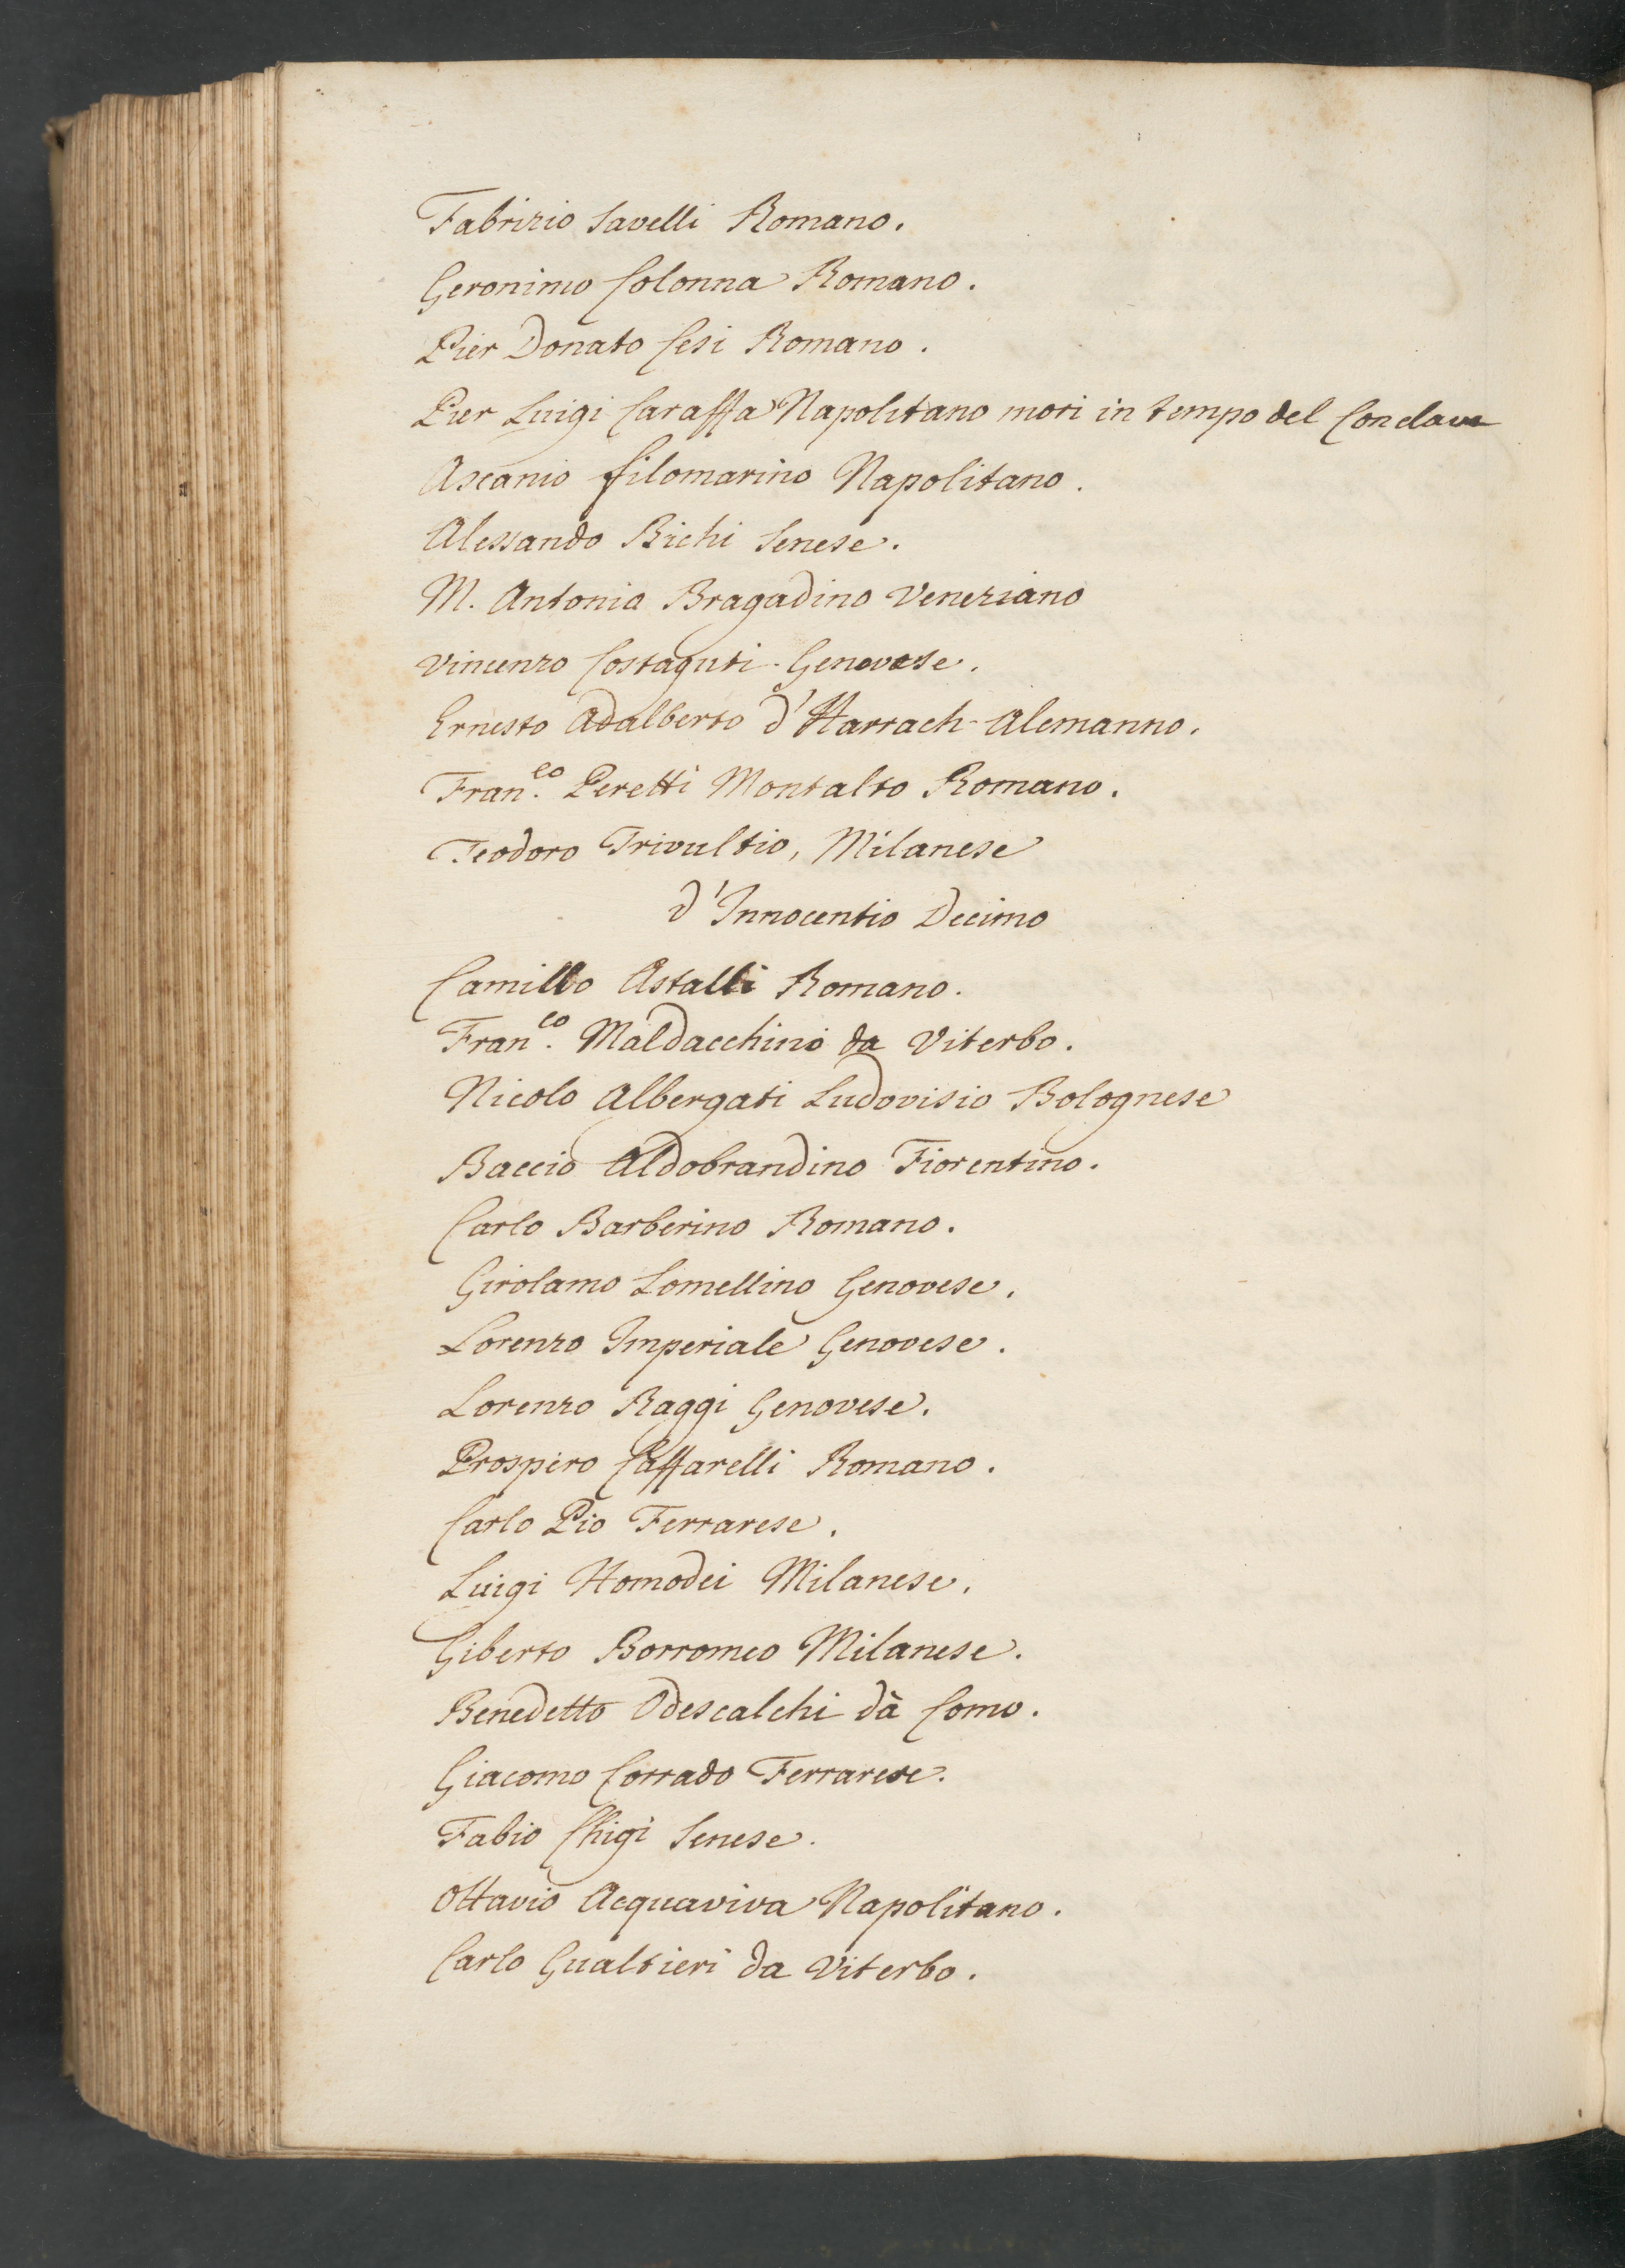 Fabrizio Savelli Romano.
Geronimo Colonna Romano.
Pier Donato Cesi Romano.
Pier Luigi Caraffa Napolitano mori in tempo del Conclave
Ascanio filomarino Napolitano.
Alessando Bichi Senese.
M. Antonio Bragadino Veneziano
Vincenzo Costaguti Genovese.
Ernesto Adalberto d'Harrach Alemanno.
Fran.co Peretti Montalto Romano.
Teodoro Trivultio, Milanese
d'Innocentio Decimo
Camillo Astalli Romano.
Fran.co Maldacchino da Viterbo.
Nicolo Albergati Ludovisio Bolognese
Baccio Aldobrandino Fiorentino.
Carlo Barberino Romano.
Girolamo Lomellino Genovese.
Lorenzo Imperiale Genovese.
Lorenzo Raggi Genovese.
Prospero Caffarelli Romano.
Carlo Pio Ferrarese.
Luigi Homodei Milanese.
Giberto Borromeo Milanese.
Benedetto Odescalchi dà Como.
Giacomo Corrado Ferrarese.
Fabio Chigi Senese.
Ottavio Acquaviva Napolitano.
Carlo Gualtieri da Viterbo.